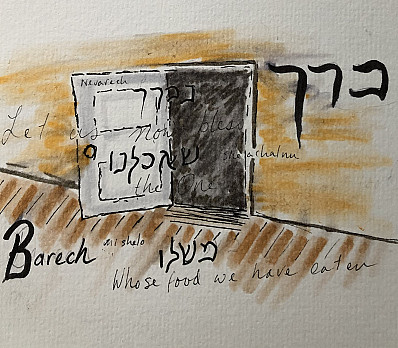 Nevarech
נברך
ברך
Let us now bless
שאכלנו
she'achalnu
the One
Barech
mishelo
משלו
Whose food we have eaten